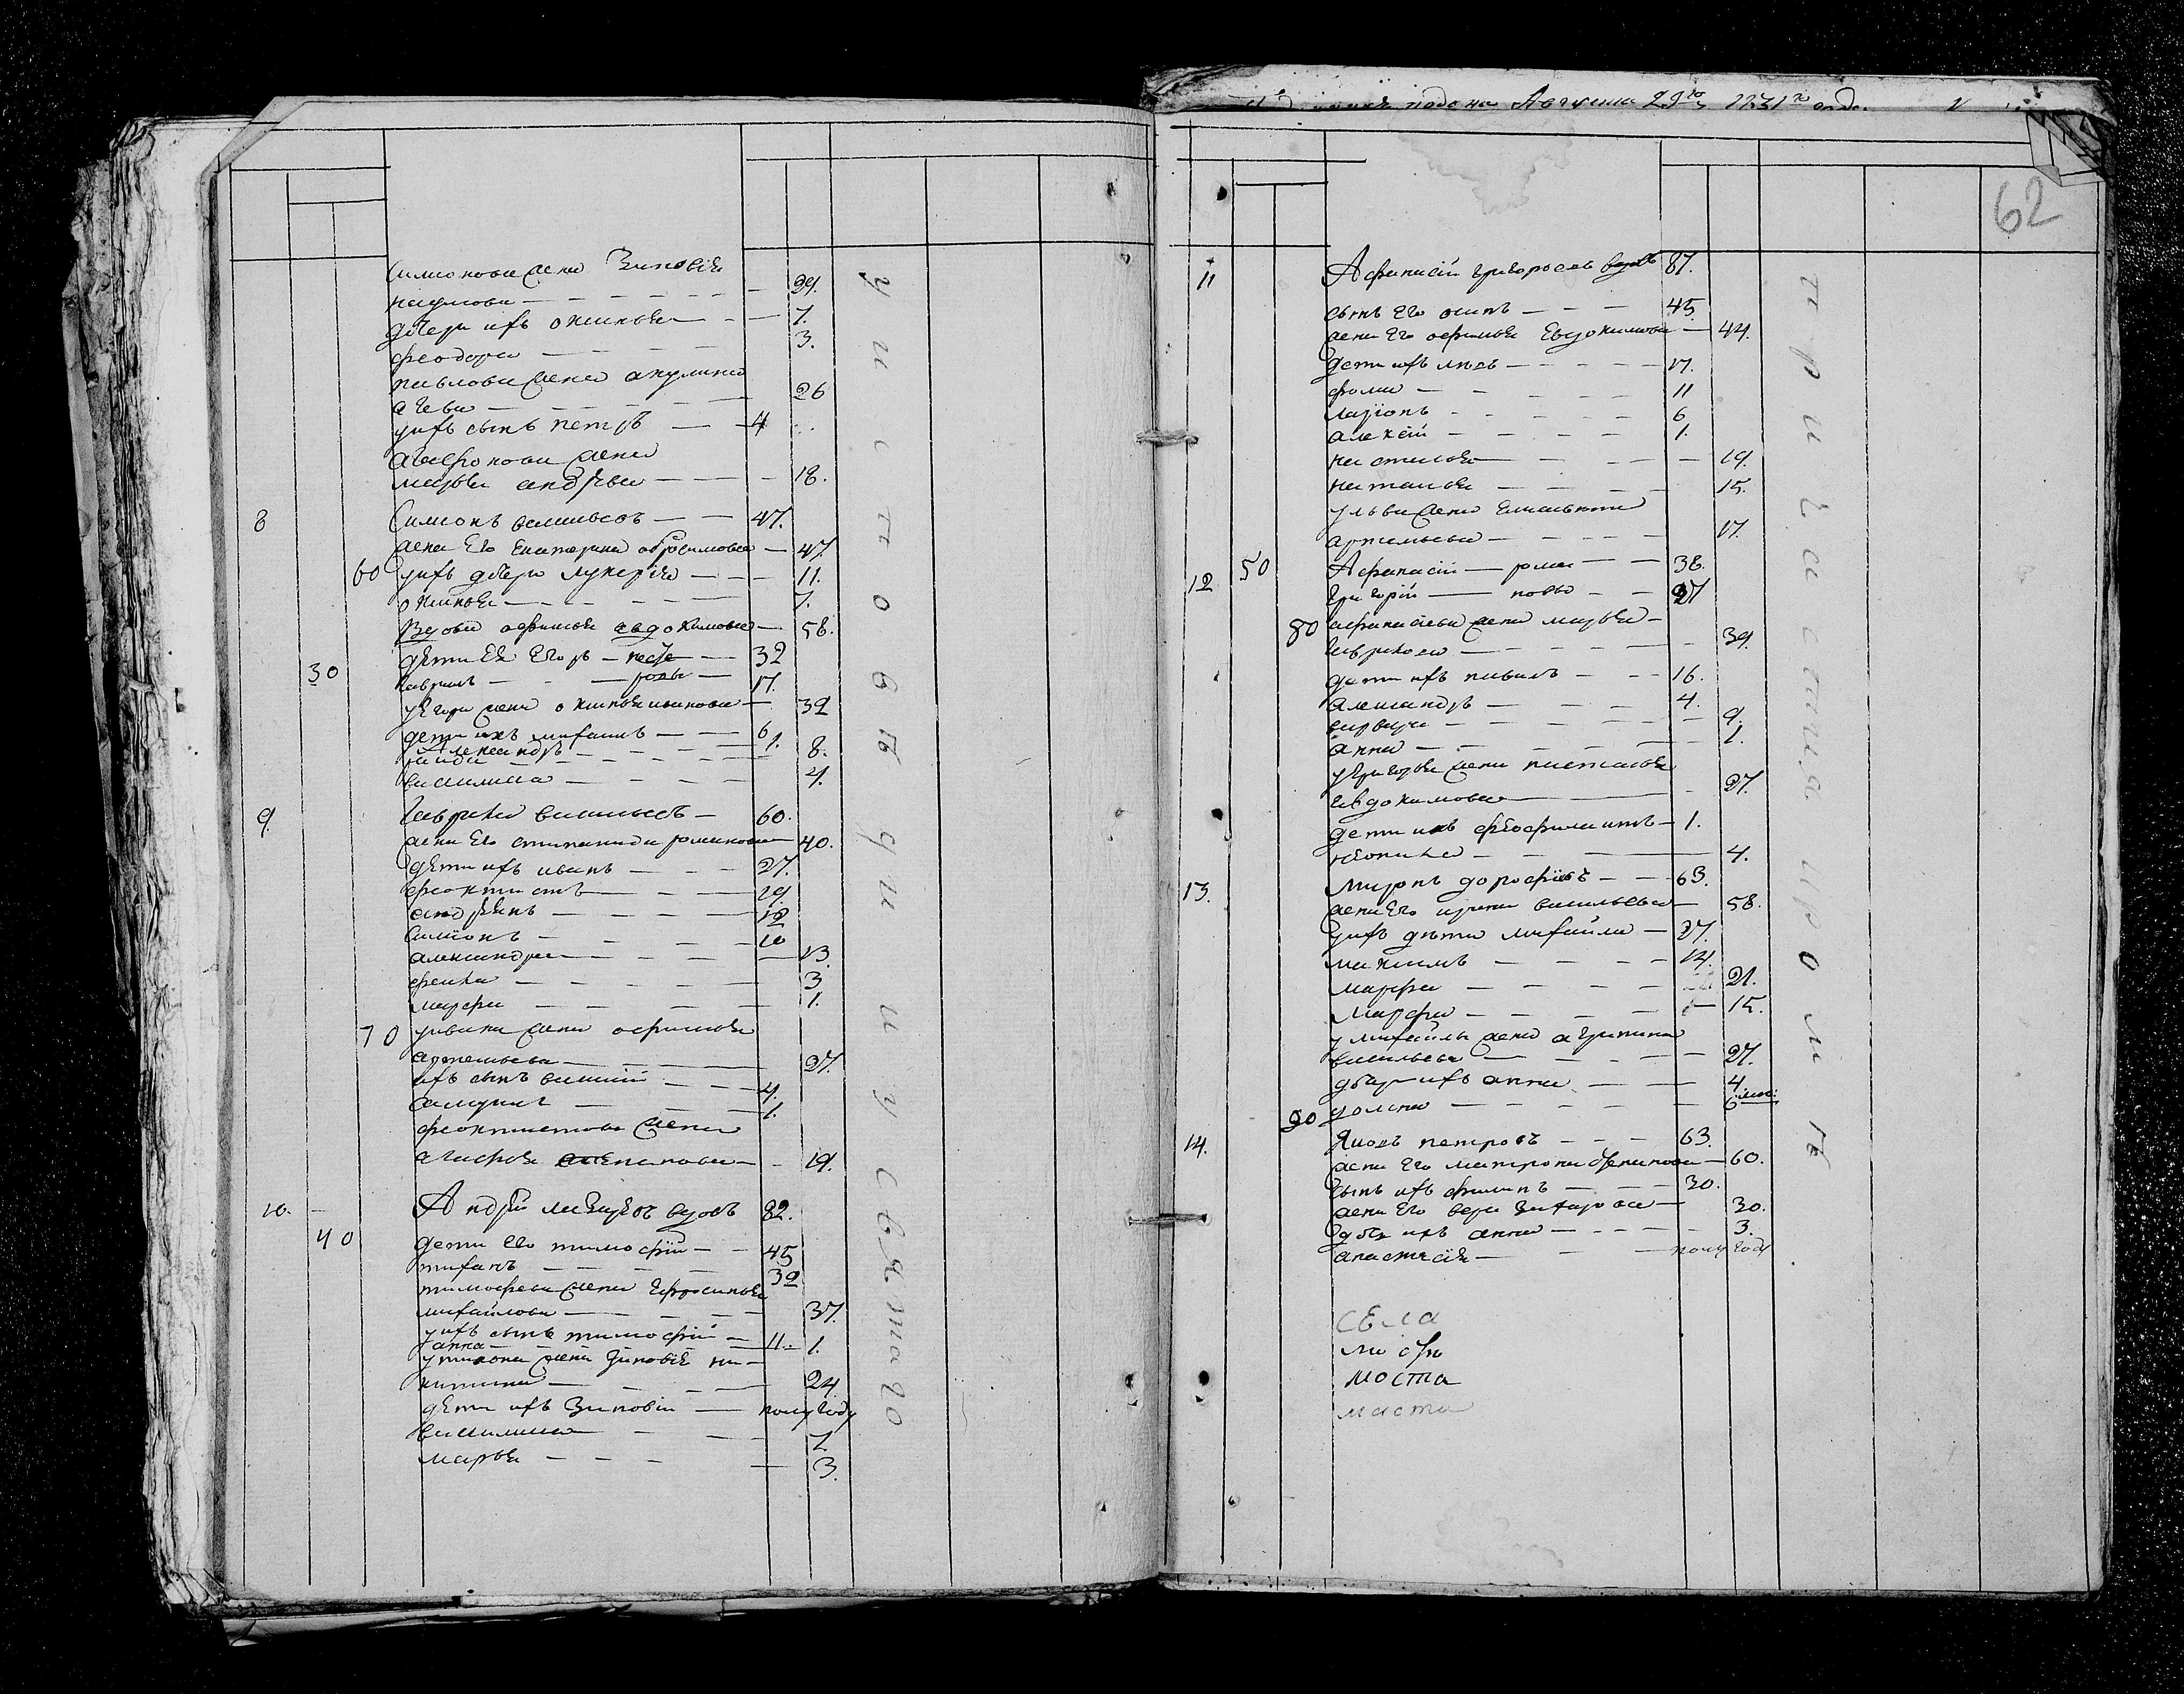 Симионова жена Зиновия
наумова — 29.
дочери ихъ оксинья — 7.
феодора — 3.
павлова жена акулина
агева — 26
у ихъ сынъ петръ — 4
агафонова жена
марья андрева — 18.
8 Симионъ васильевъ — 47.
жена Его Екатерина абросимова — 47.
60 у ихъ дочери лукерия — 11.
оксинья — 7.
Вдова афимья евдокимова — 58.
30 дети Ея Егоръ — 32
гаврилъ — 17.
у Егора жена оксинья иванова — 32
дети ихъ михаилъ — 6
Александръ — 1.
8.
василиса — 4.
9. Гаврила васильевъ — 60.
жена Его степанида романова — 40.
дети ихъ иванъ — 27.
феоктистъ — 19.
андреянъ — 12
Симионъ — 10
александра — 13.
фекла — 3
марфа — 1.
70 у ивана жена афимья
артемьева — 27.
ихъ сынъ василий — 4.
самуилъ — 1.
феоктистова жена
агафья степанова — 19.
10. Андрей вдовъ 82.
40 дети Его тимофей — 45
тиханъ — 32
тимофеева жена Ефросинья
михайлова — 37.
у ихъ сынъ тимофей — 11.
анна — 1.
у тихона жена Зиновия ни-
китина — 24.
дети ихъ Зиновий — полугоду
василиса — 7.
марья — 3.
у и с п о в ѣ д и и у с в я т а г о
подана Августа 29го 1831го года.
62
11 Афанасий григорьевъ вдовъ 87.
сынъ Его осипъ — 45.
жена Его афимья Евдокимова — 44.
дети ихъ — 17.
фома — 11
ларионъ — 6
алексей — 1.
настасья — 19.
наталья — 15.
жена
артемьева — 17.
12 50 Афанасий — рома — 38.
григорий — новы — 27
80 афанасьева жена марья —
гаврилова — 39.
дети ихъ павилъ — 16.
александръ — 4.
варвара — 9.
анна — 1.
у григорья жена настасья
евдокимова — 27.
дети ихъ феофилактъ — 1.
4.
13. Миронъ дорофеевъ — 63.
жена Его ирина васильева — 58.
у ихъ дети михайла — 27.
максимъ — 14.
марфа — 21.
марфа — 15.
у михайлы жена агрипина
васильева — 27.
дочери ихъ анна — 4
90 улиана — 6 мес:
14. Яковъ петровъ — 63.
жена Его матрона степанова — 60.
сынъ ихъ филипъ — 30.
жена Его вера захарова — 30.
дочь ихъ анна — 3.
анастасия — полугоду
п р и ч а с т и я и р о м ѣ
СЕла
моста
маста